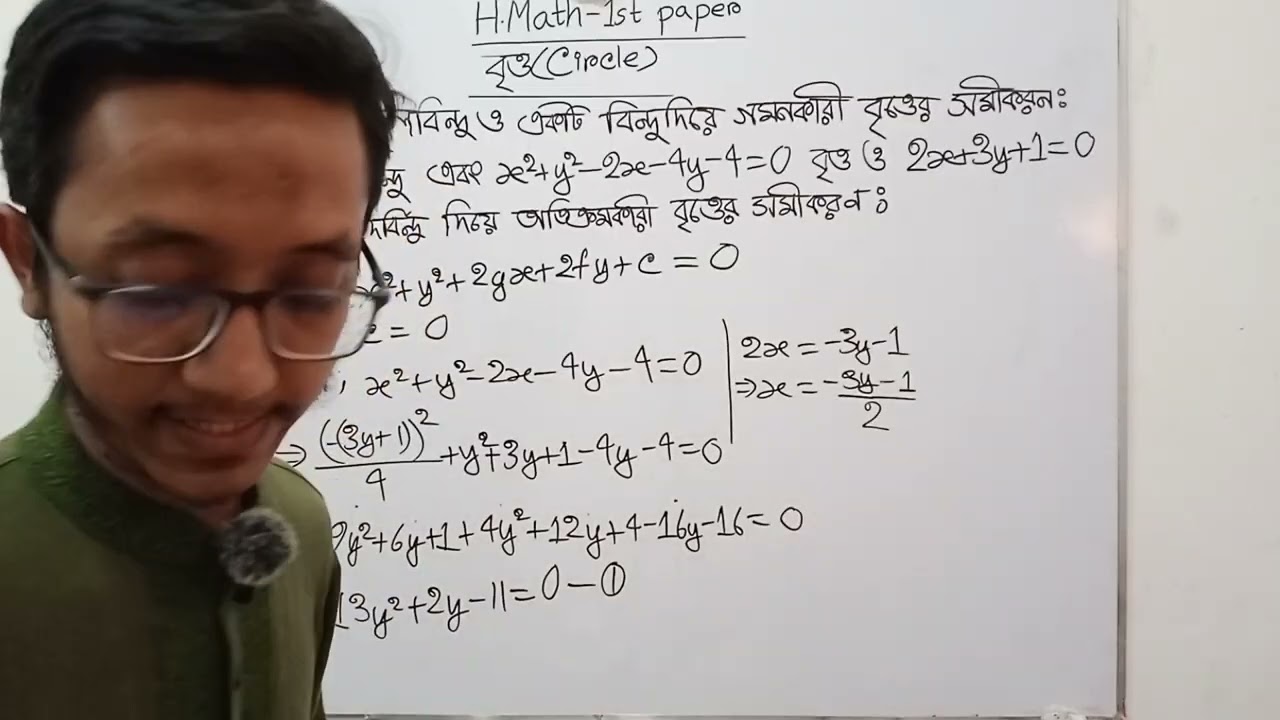 H.Math-1st paper
বৃত্ত(Circle)
ও একটি বিন্দু দিয়ে গমনকারী বৃত্তের সমীকরনঃ
এবং x²+y²-2x-4y-4=0 বৃত্ত ও 2x+3y+1=0
দিয়ে অতিক্রমকারী বৃত্তের সমীকরণঃ
x²+y²+2gx+2fy+c=0
c=0
, x²+y²-2x-4y-4=0
⇒ (-(3y+1))²/4 +y²+3y+1-4y-4=0
9y²+6y+1+4y²+12y+4-16y-16=0
13y²+2y-11=0-①
2x=-3y-1
⇒x=(-3y-1)/2